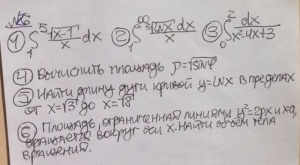 №6
① ∫₁⁵ √(x-1)/x dx ② ∫₁^∞ √(lnx)/x dx ③ ∫₀² dx/(x²-4x+3)
④ Вычислить площадь ρ=15sin4φ
⑤ Найти длину дуги кривой y=lnx в пределах
от x=√3 до x=√8
⑥ Площадь, ограниченная линиями y²=2px и x=a,
вращается вокруг оси x. Найти объем тела
вращения.